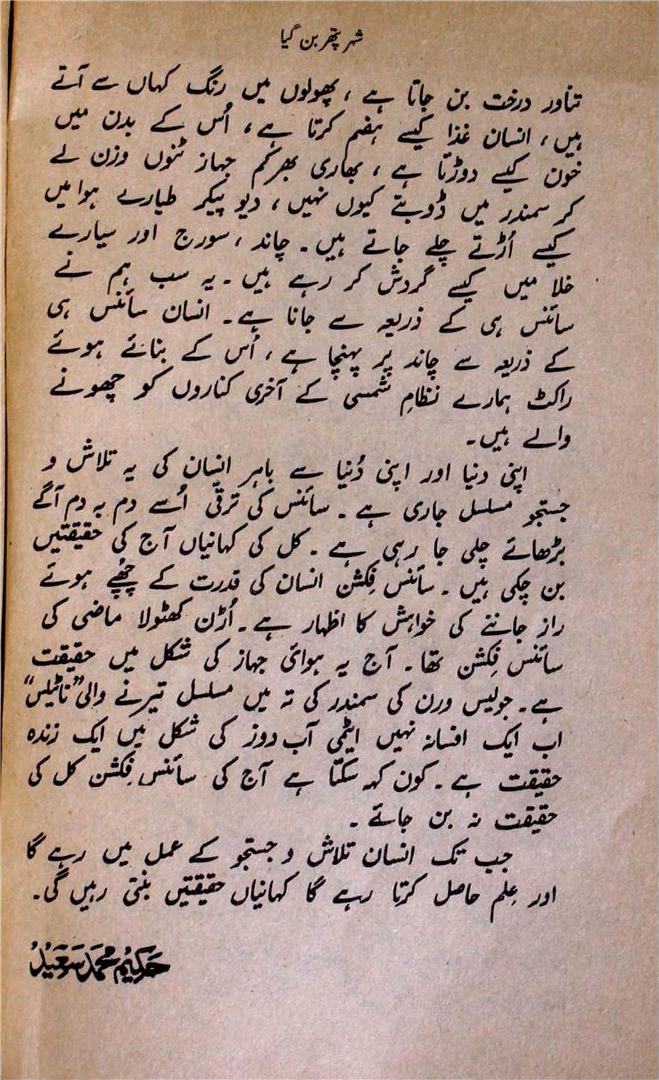 شہر پتھر بن گیا
تناور درخت بن جاتا ہے ، پھولوں میں رنگ کہاں سے آتے
ہیں ، انسان غذا کیسے ہضم کرتا ہے ، اُس کے بدن میں
خون کیسے دوڑتا ہے ، بھاری بھرکم جہاز ٹنوں وزن لے
کر سمندر میں ڈوبتے کیوں نہیں ، دیو پیکر طیارے ہوا میں
کیسے اُڑتے چلے جاتے ہیں ۔ چاند ، سورج اور سیارے
خلا میں کیسے گردش کر رہے ہیں ۔ یہ سب ہم نے
سائنس ہی کے ذریعہ سے جانا ہے ۔ انسان سائنس ہی
کے ذریعہ سے چاند پر پہنچا ہے ، اُس کے بنائے ہوئے
راکٹ ہمارے نظامِ شمسی کے آخری کناروں کو چھونے
والے ہیں ۔
اپنی دنیا اور اپنی دُنیا سے باہر انسان کی یہ تلاش و
جستجو مسلسل جاری ہے ۔ سائنس کی ترقی اُسے دم بہ دم آگے
بڑھائے چلی جا رہی ہے ۔ کل کی کہانیاں آج کی حقیقتیں
بن چکی ہیں ۔ سائنس فِکشن انسان کی قدرت کے چھُپے ہوئے
راز جاننے کی خواہش کا اظہار ہے ۔ اُڑن کھٹولا ماضی کی
سائنس فِکشن تھا ۔ آج یہ ہوائی جہاز کی شکل میں حقیقت
ہے ۔ جولیس ورن کی سمندر کی تہ میں مسلسل تیرنے والی ”ناٹیلس“
اب ایک افسانہ نہیں ایٹمی آب دوز کی شکل میں ایک زندہ
حقیقت ہے ۔ کون کہہ سکتا ہے آج کی سائنس فِکشن کل کی
حقیقت نہ بن جائے ۔
جب تک انسان تلاش و جستجو کے عمل میں رہے گا
اور عِلم حاصل کرتا رہے گا کہانیاں حقیقتیں بنتی رہیں گی ۔
حکیم محمد سعید